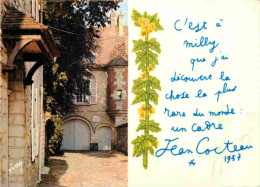 C'est à
milly
que j'ai
découvert la
chose la plus
rare du monde :
un cadre
Jean Cocteau
*
1957